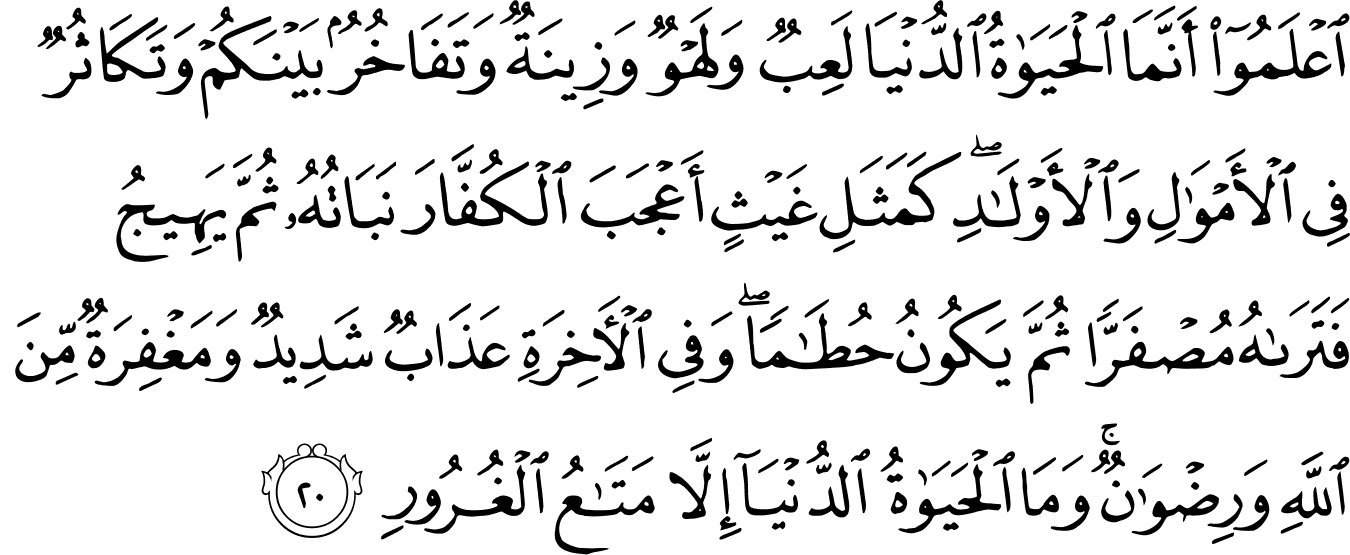 ٱعْلَمُوٓا۟ أَنَّمَا ٱلْحَيَوٰةُ ٱلدُّنْيَا لَعِبٌ وَلَهْوٌ وَزِينَةٌ وَتَفَاخُرٌۢ بَيْنَكُمْ وَتَكَاثُرٌ
فِى ٱلْأَمْوَٰلِ وَٱلْأَوْلَـٰدِ ۖ كَمَثَلِ غَيْثٍ أَعْجَبَ ٱلْكُفَّارَ نَبَاتُهُۥ ثُمَّ يَهِيجُ
فَتَرَىٰهُ مُصْفَرًّا ثُمَّ يَكُونُ حُطَـٰمًا ۖ وَفِى ٱلْـَٔاخِرَةِ عَذَابٌ شَدِيدٌ وَمَغْفِرَةٌ مِّنَ
ٱللَّهِ وَرِضْوَٰنٌ ۚ وَمَا ٱلْحَيَوٰةُ ٱلدُّنْيَآ إِلَّا مَتَـٰعُ ٱلْغُرُورِ ٢٠